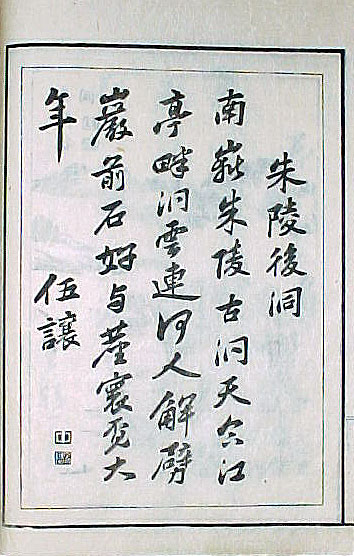 朱陵後洞
南嶽朱陵古洞天合江
亭畔洞雲連何人解劈
巖前石好与塵寰覓大
年
伍讓